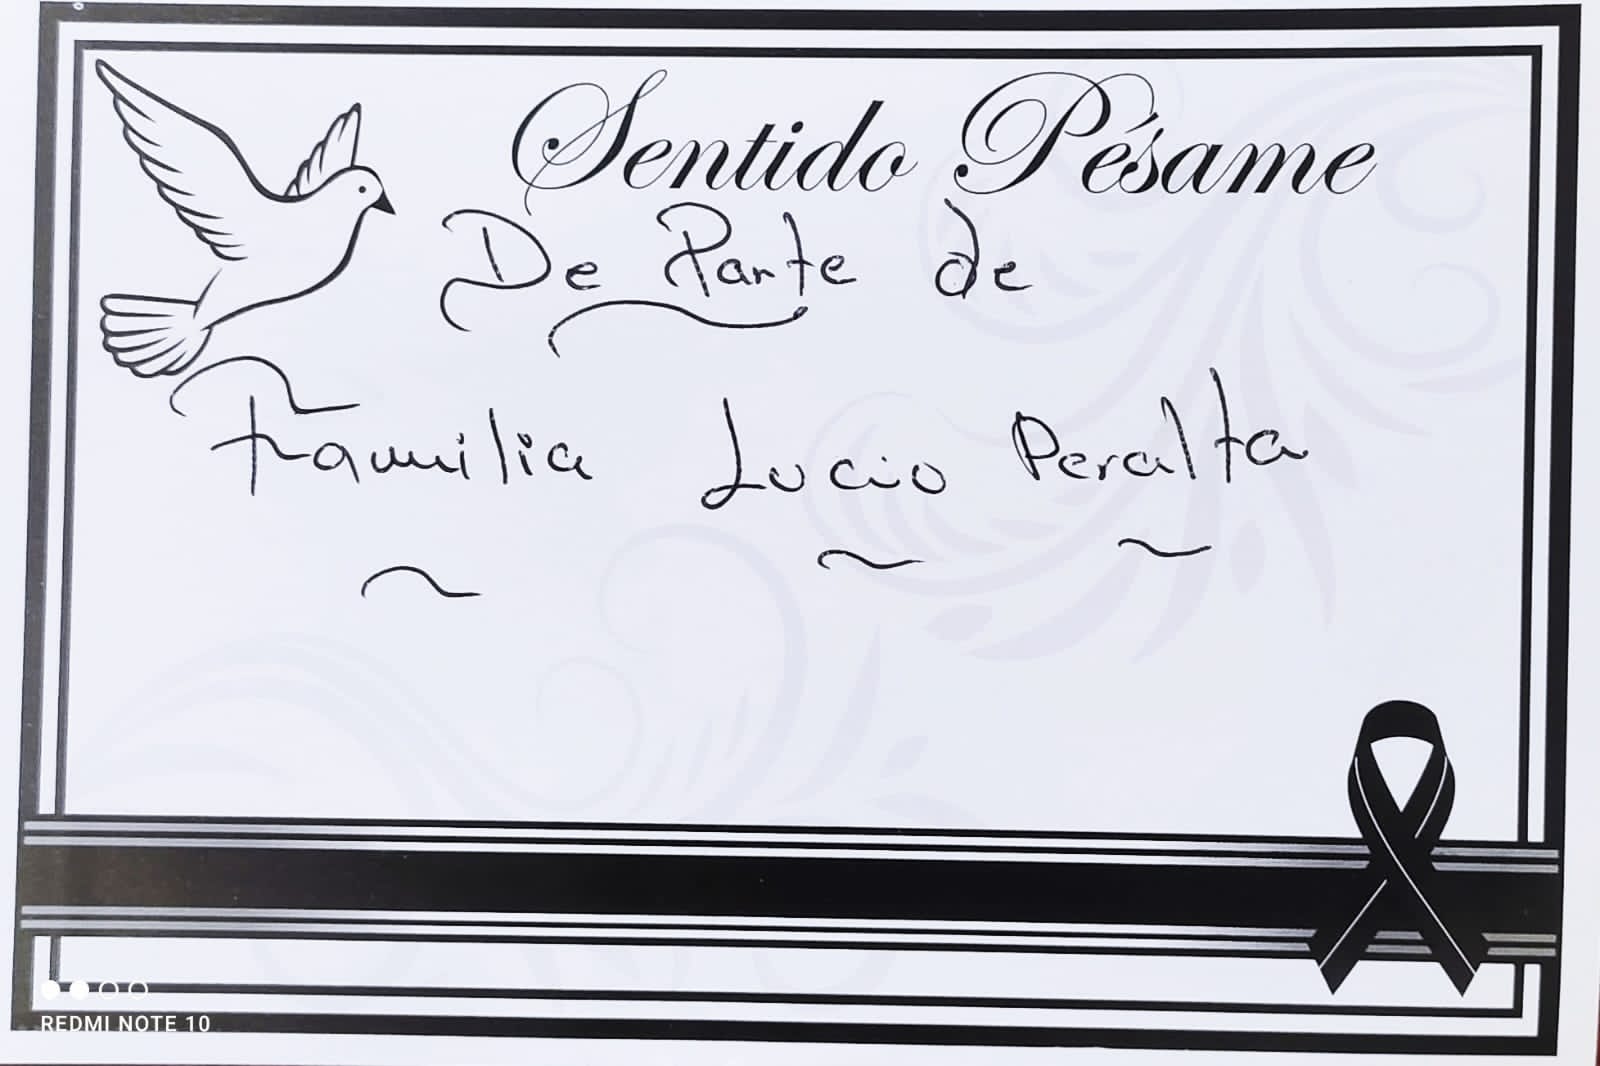 Sentido Pésame
De Parte de
Familia Lucio Peralta
REDMI NOTE 10